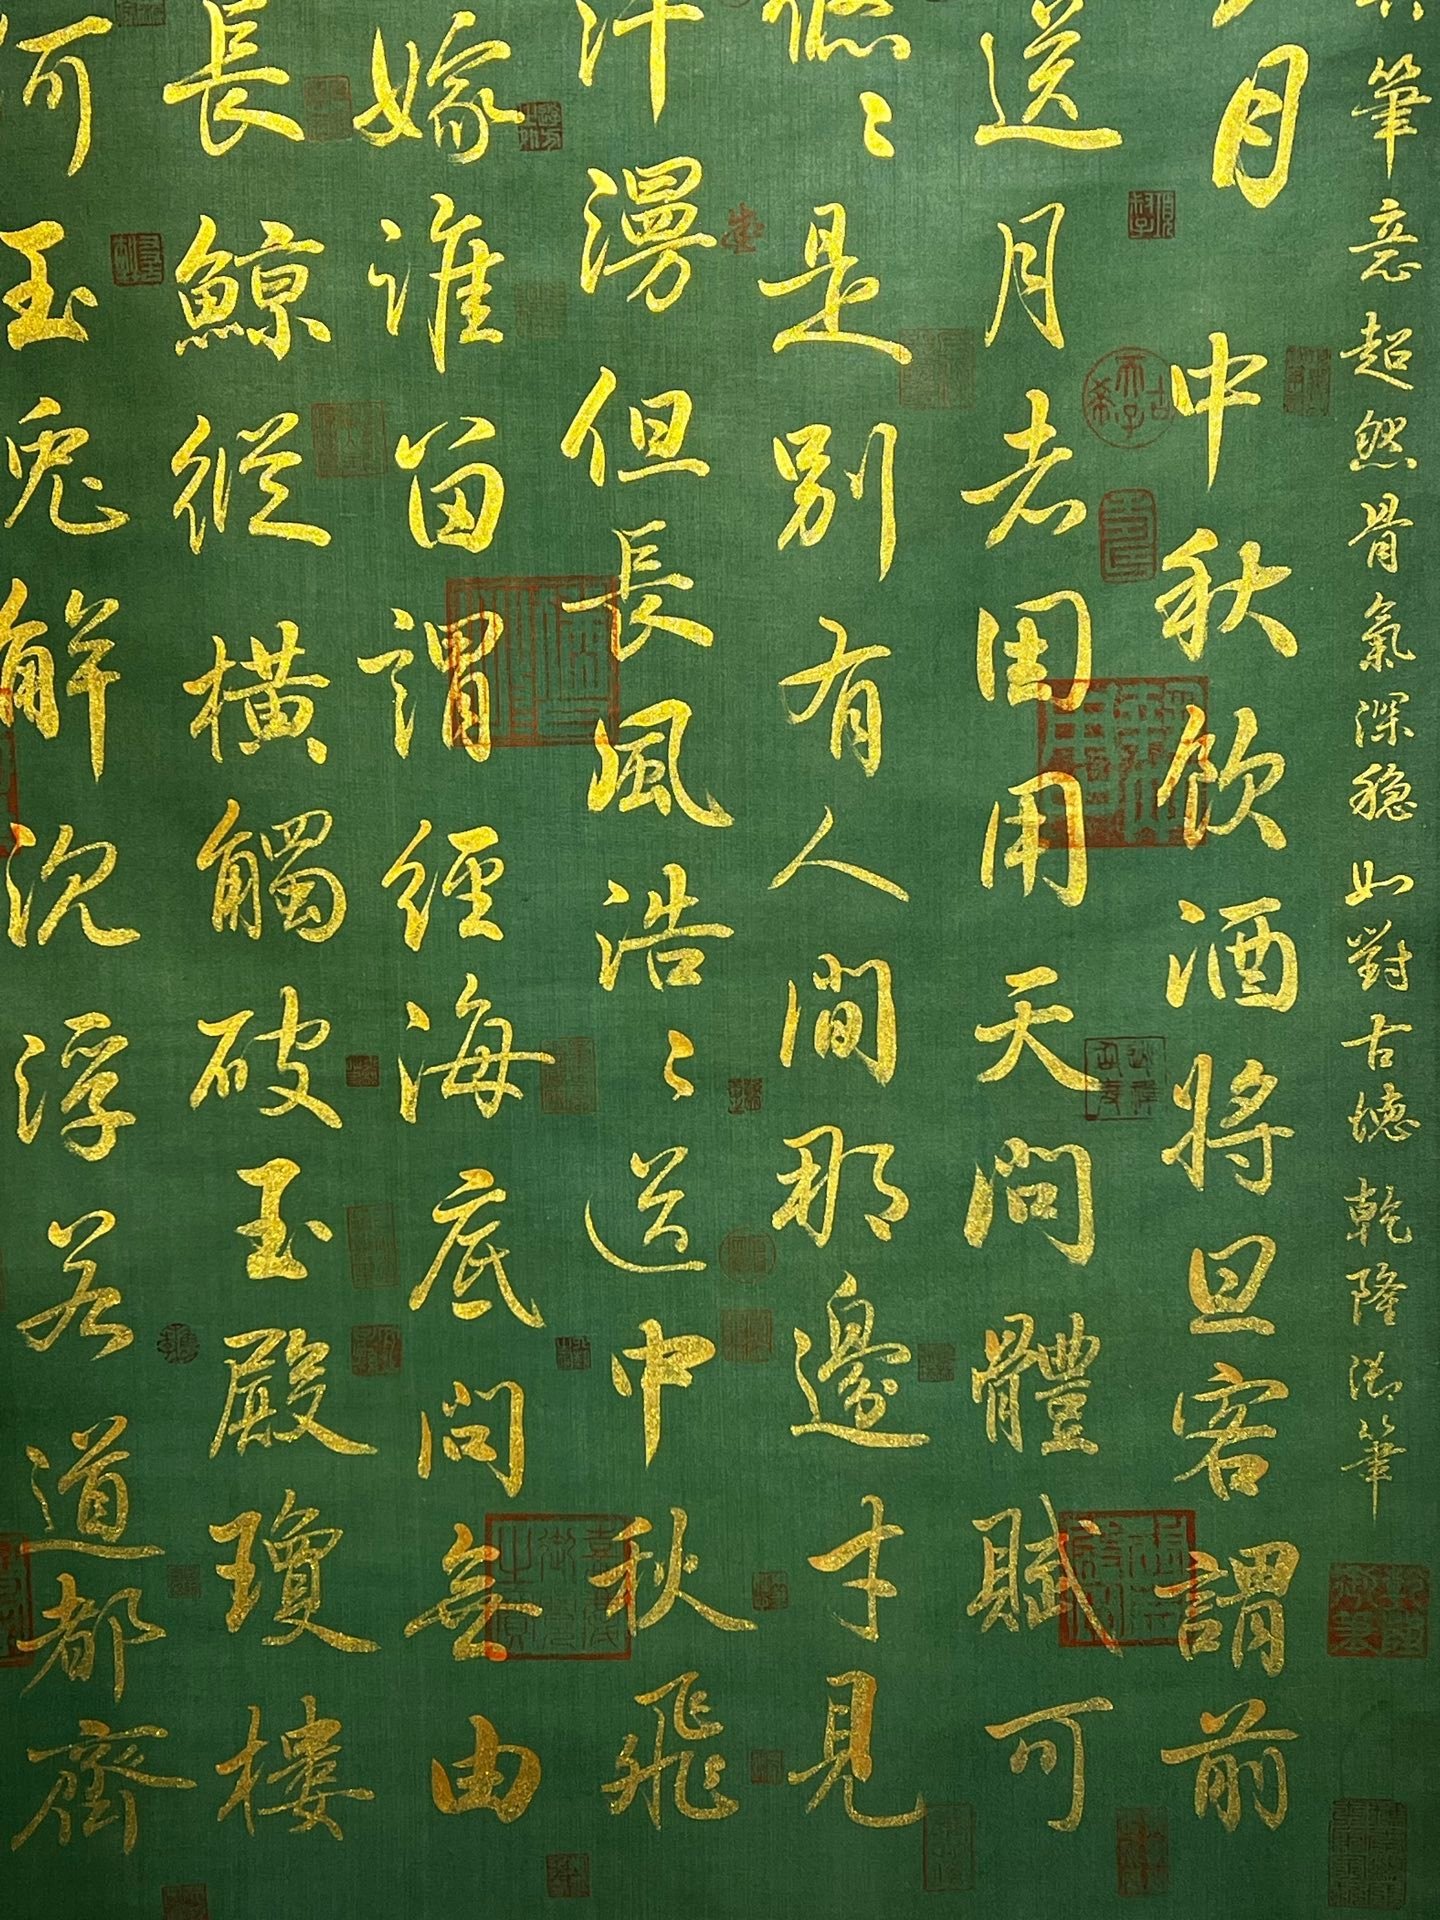 筆意超然骨氣深穩如對古德乾隆御筆
月中秋飲酒將旦客謂前
送月者因用天問體賦可
悠〻是別有人間那邊才見
汗漫但長風浩〻送中秋飛
嫁誰留謂經海底問無由
長鯨縱橫觸破玉殿瓊樓
何玉兔解沉浮若道都齊